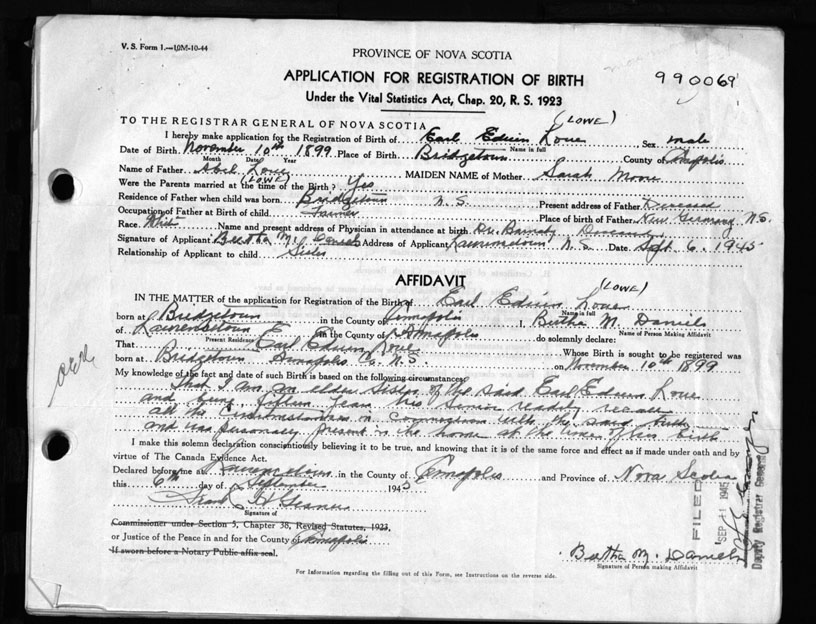 V. S. Form 1.—10M-10-44
PROVINCE OF NOVA SCOTIA
APPLICATION FOR REGISTRATION OF BIRTH
990069
Under the Vital Statistics Act, Chap. 20, R. S. 1923
(LOWE)
TO THE REGISTRAR GENERAL OF NOVA SCOTIA
I hereby make application for the Registration of Birth of Earl Edwin Lowe Sex male
Name in full
Date of Birth November 10th 1899 Place of Birth Bridgetown County of Annapolis
Month Date Year
Name of Father Abel Lowe MAIDEN NAME of Mother Sarah Moore
(LOWE)
Were the Parents married at the time of the Birth? Yes
Residence of Father when child was born Bridgetown N.S. Present address of Father Deceased
Occupation of Father at Birth of child Farmer Place of Birth of Father New Germany N.S.
Race Name and present address of Physician in attendance at birth Dr. Barnaby Deceased
Signature of Applicant Bertha M. Daniels Address of Applicant Lawrencetown, N.S. Date Sept. 6, 1945
Relationship of Applicant to child Sister
AFFIDAVIT
(LOWE)
IN THE MATTER of the application for Registration of the Birth of Earl Edwin Lowe
Name in full
born at Bridgetown in the County of Annapolis I, Bertha M. Daniels
Name of Person Making Affidavit
of Lawrencetown in the County of Annapolis do solemnly declare:
Present Residence
That Earl Edwin Lowe Whose Birth is sought to be registered was
born at Bridgetown Annapolis Co. N.S. on November 10th 1899
My knowledge of the fact and date of such Birth is based on the following circumstances
That I am an elder sister of the said Earl Edwin Lowe
and being fifteen years his senior readily recall
all the circumstances in connection with the said birth
and was personally present in the home at the time of his birth
I make this solemn declaration conscientiously believing it to be true, and knowing that it is of the same force and effect as if made under oath and by
virtue of The Canada Evidence Act.
Declared before me at Lawrencetown in the County of Annapolis and Province of Nova Scotia
this 6th day of September 1945
Signature of
Commissioner under Section 5, Chapter 38, Revised Statutes, 1923,
or Justice of the Peace in and for the County of Annapolis
If sworn before a Notary Public affix seal.
Bertha M. Daniels
Signature of Person making Affidavit
For Information regarding the filling out of this Form, see Instructions on the reverse side.
FILED
SEP 11 1945
Deputy Registrar General